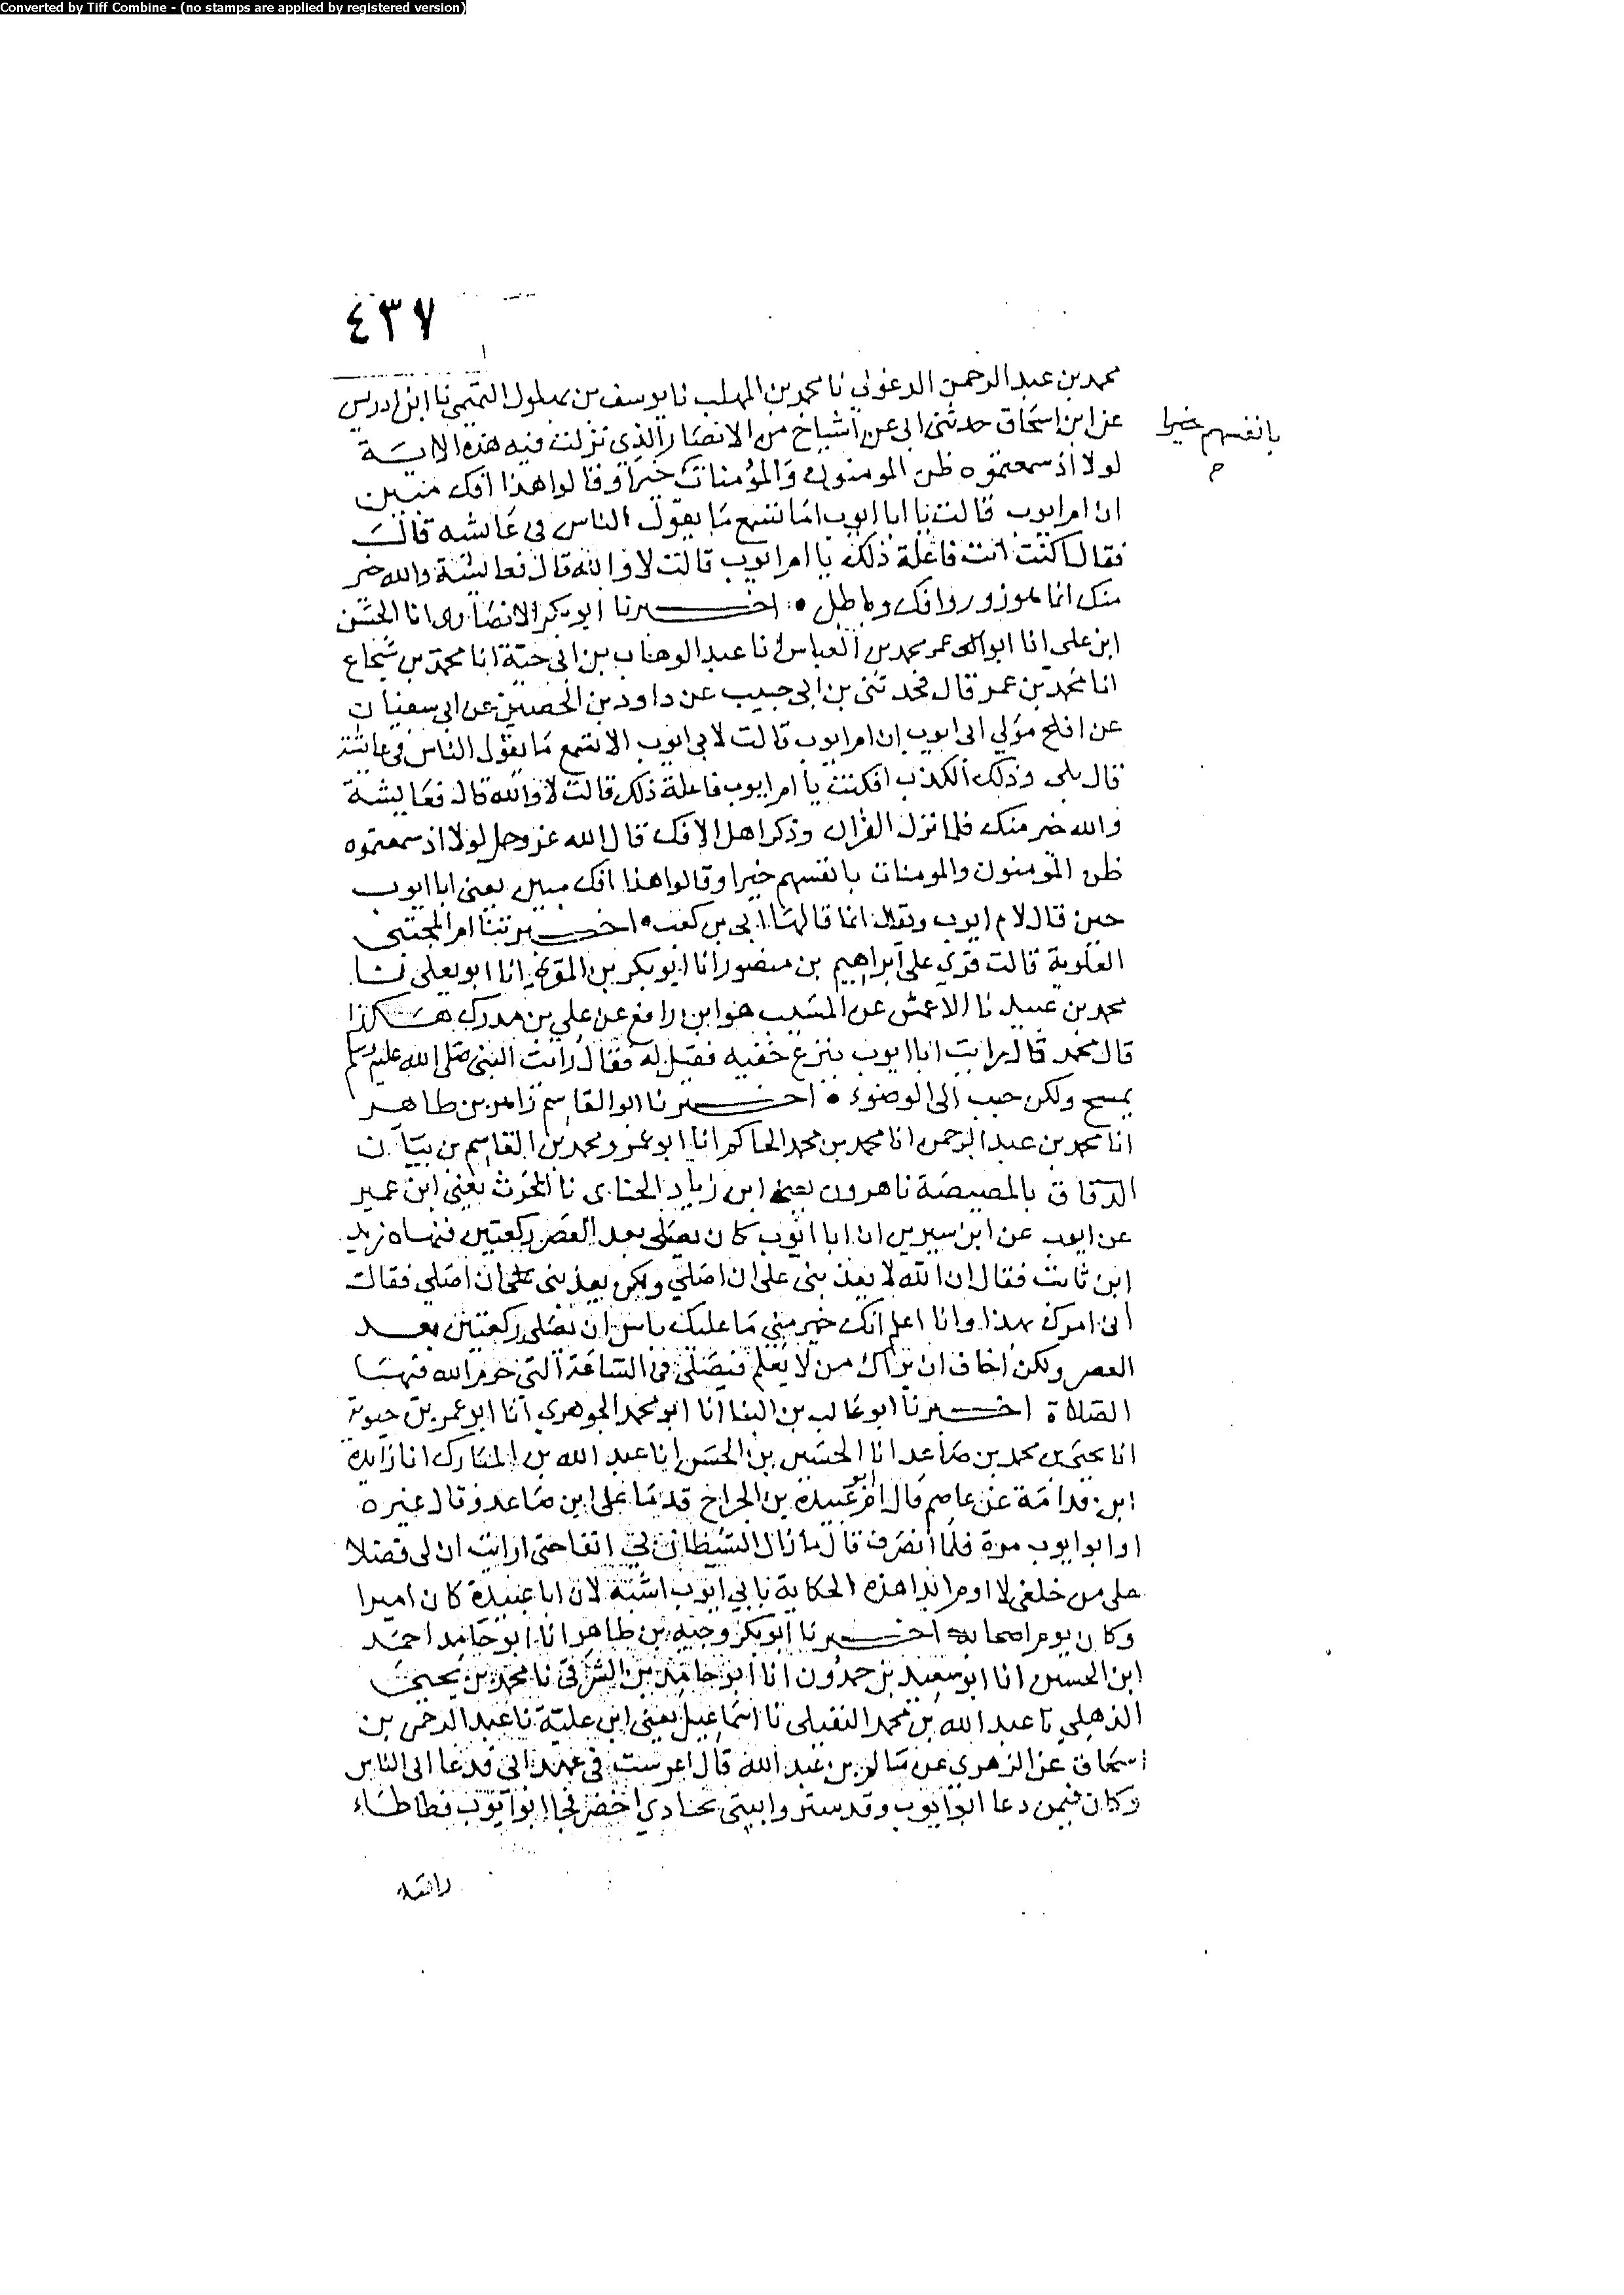 Converted by Tiff Combine - (no stamps are applied by registered version)
٤٣٧
محمد بن عبد الرحمن الدغولي نا محمد بن المهلب نا يوسف بن بهلول التميمي نا ابن ادريس
عن ابن اسحاق حدثني ابي عن اشياخ من الانصار الذي نزلت فيه هذه الاية
بانفسهم خيرا
م
لولا اذ سمعتموه ظن المومنون والمؤمنات خيرا وقالوا هذا افك مبين
ان ام ايوب قالت يا ابا ايوب اما تسمع ما يقول الناس في عائشه قالت
فقال اكنت انت فاعلة ذلك يا ام ايوب قالت لا والله قال فعائشة والله خير
منك انما هو زور وافك وباطل • اخبرنا ابو بكر الانصاري انا الحسن
ابن علي انا ابو عمر محمد بن العباس انا عبد الوهاب بن ابي حية انا محمد بن شجاع
انا محمد بن عمر قال فحدثني بن ابي حبيب عن داود بن الحصين عن ابي سفيان
عن افلح مولي ابي ايوب ان ام ايوب قالت لابي ايوب الا تسمع ما يقول الناس في عائشة
قال بلى وذلك الكذب افكنت يا ام ايوب فاعلة ذلك قالت لا والله قال فعايشة
والله خير منك فلما نزل القران وذكر اهل الافك قال الله عز وجل لولا اذ سمعتموه
ظن المومنون والمومنات بانفسهم خيرا وقالوا هذا افك مبين يعني ابا ايوب
حين قال لام ايوب ويقال انما قالها ابي بن كعب • اخبرتنا ام المجتبى
العلوية قالت قرئ على ابراهيم بن منصور انا ابو بكر بن المقرئ انا ابو يعلى نا
محمد بن عبيد نا الاعمش عن المسيب هو ابن رافع عن علي بن مدرك هكذا
قال محمد قال رايت ابا ايوب ينزع خفيه فقيل له فقال رايت النبي صلى الله عليه وسلم
يمسح ولكن حبب الي الوضوء • اخبرنا ابو القاسم زاهر بن طاهر
انا محمد بن عبد الرحمن انا محمد بن محمد الحاكم انا ابو عمرو محمد بن القاسم بن بيان
الدقاق بالمصيصة نا هرون يعني ابن زياد الحنائي نا الحرث يعني ابن عمير
عن ايوب عن ابن سيرين ان ابا ايوب كان يصلي بعد العصر ركعتين فنهاه زيد
ابن ثابت فقال ان الله لا يعذبني على ان اصلي ولكن يعذبني على ان اصلي فقال
اني امرك بهذا وانا اعلم انك خير مني ما عليك باس ان تصلي ركعتين بعد
العصر ولكن اخاف ان يراك من لا يعلم فيصلي في الساعة التي حرم الله فيها
الصلاة اخبرنا ابو غالب بن البنا انا ابو محمد الجوهري انا ابو عمر بن حيوية
انا يحيى بن محمد بن صاعد انا الحسين بن الحسن انا عبد الله بن المبارك انا زايدة
ابن قدامة عن عاصم قال ام ابو عبيدة بن الجراح قوما على ابن صاعد وقال غيره
او ابو ايوب مرة فلما انصرف قال ما زال الشيطان بي انفا حتى ارايت ان لي فضلا
على من خلفي لا اوم ابدا هذه الحكاية بابي ايوب اشبه لان ابا عبيدة كان اميرا
وكان يوم اصحابه اخبرنا ابو بكر وجيه بن طاهر انا ابو حامد احمد
ابن الحسن انا ابو سعيد بن حمدون انا ابو حامد بن الشرقي نا محمد بن يحيى
الذهلي نا عبد الله بن محمد النفيلي نا اسماعيل يعني ابن علية نا عبد الرحمن بن
اسحاق عن الزهري عن سالم بن عبد الله قال اعرست في عهد ابي فدعا ابي الناس
وكان فيمن دعا ابو ايوب وقد ستروا بيتي بجنادي اخضر فجا ابو ايوب فطاطاء
راسه